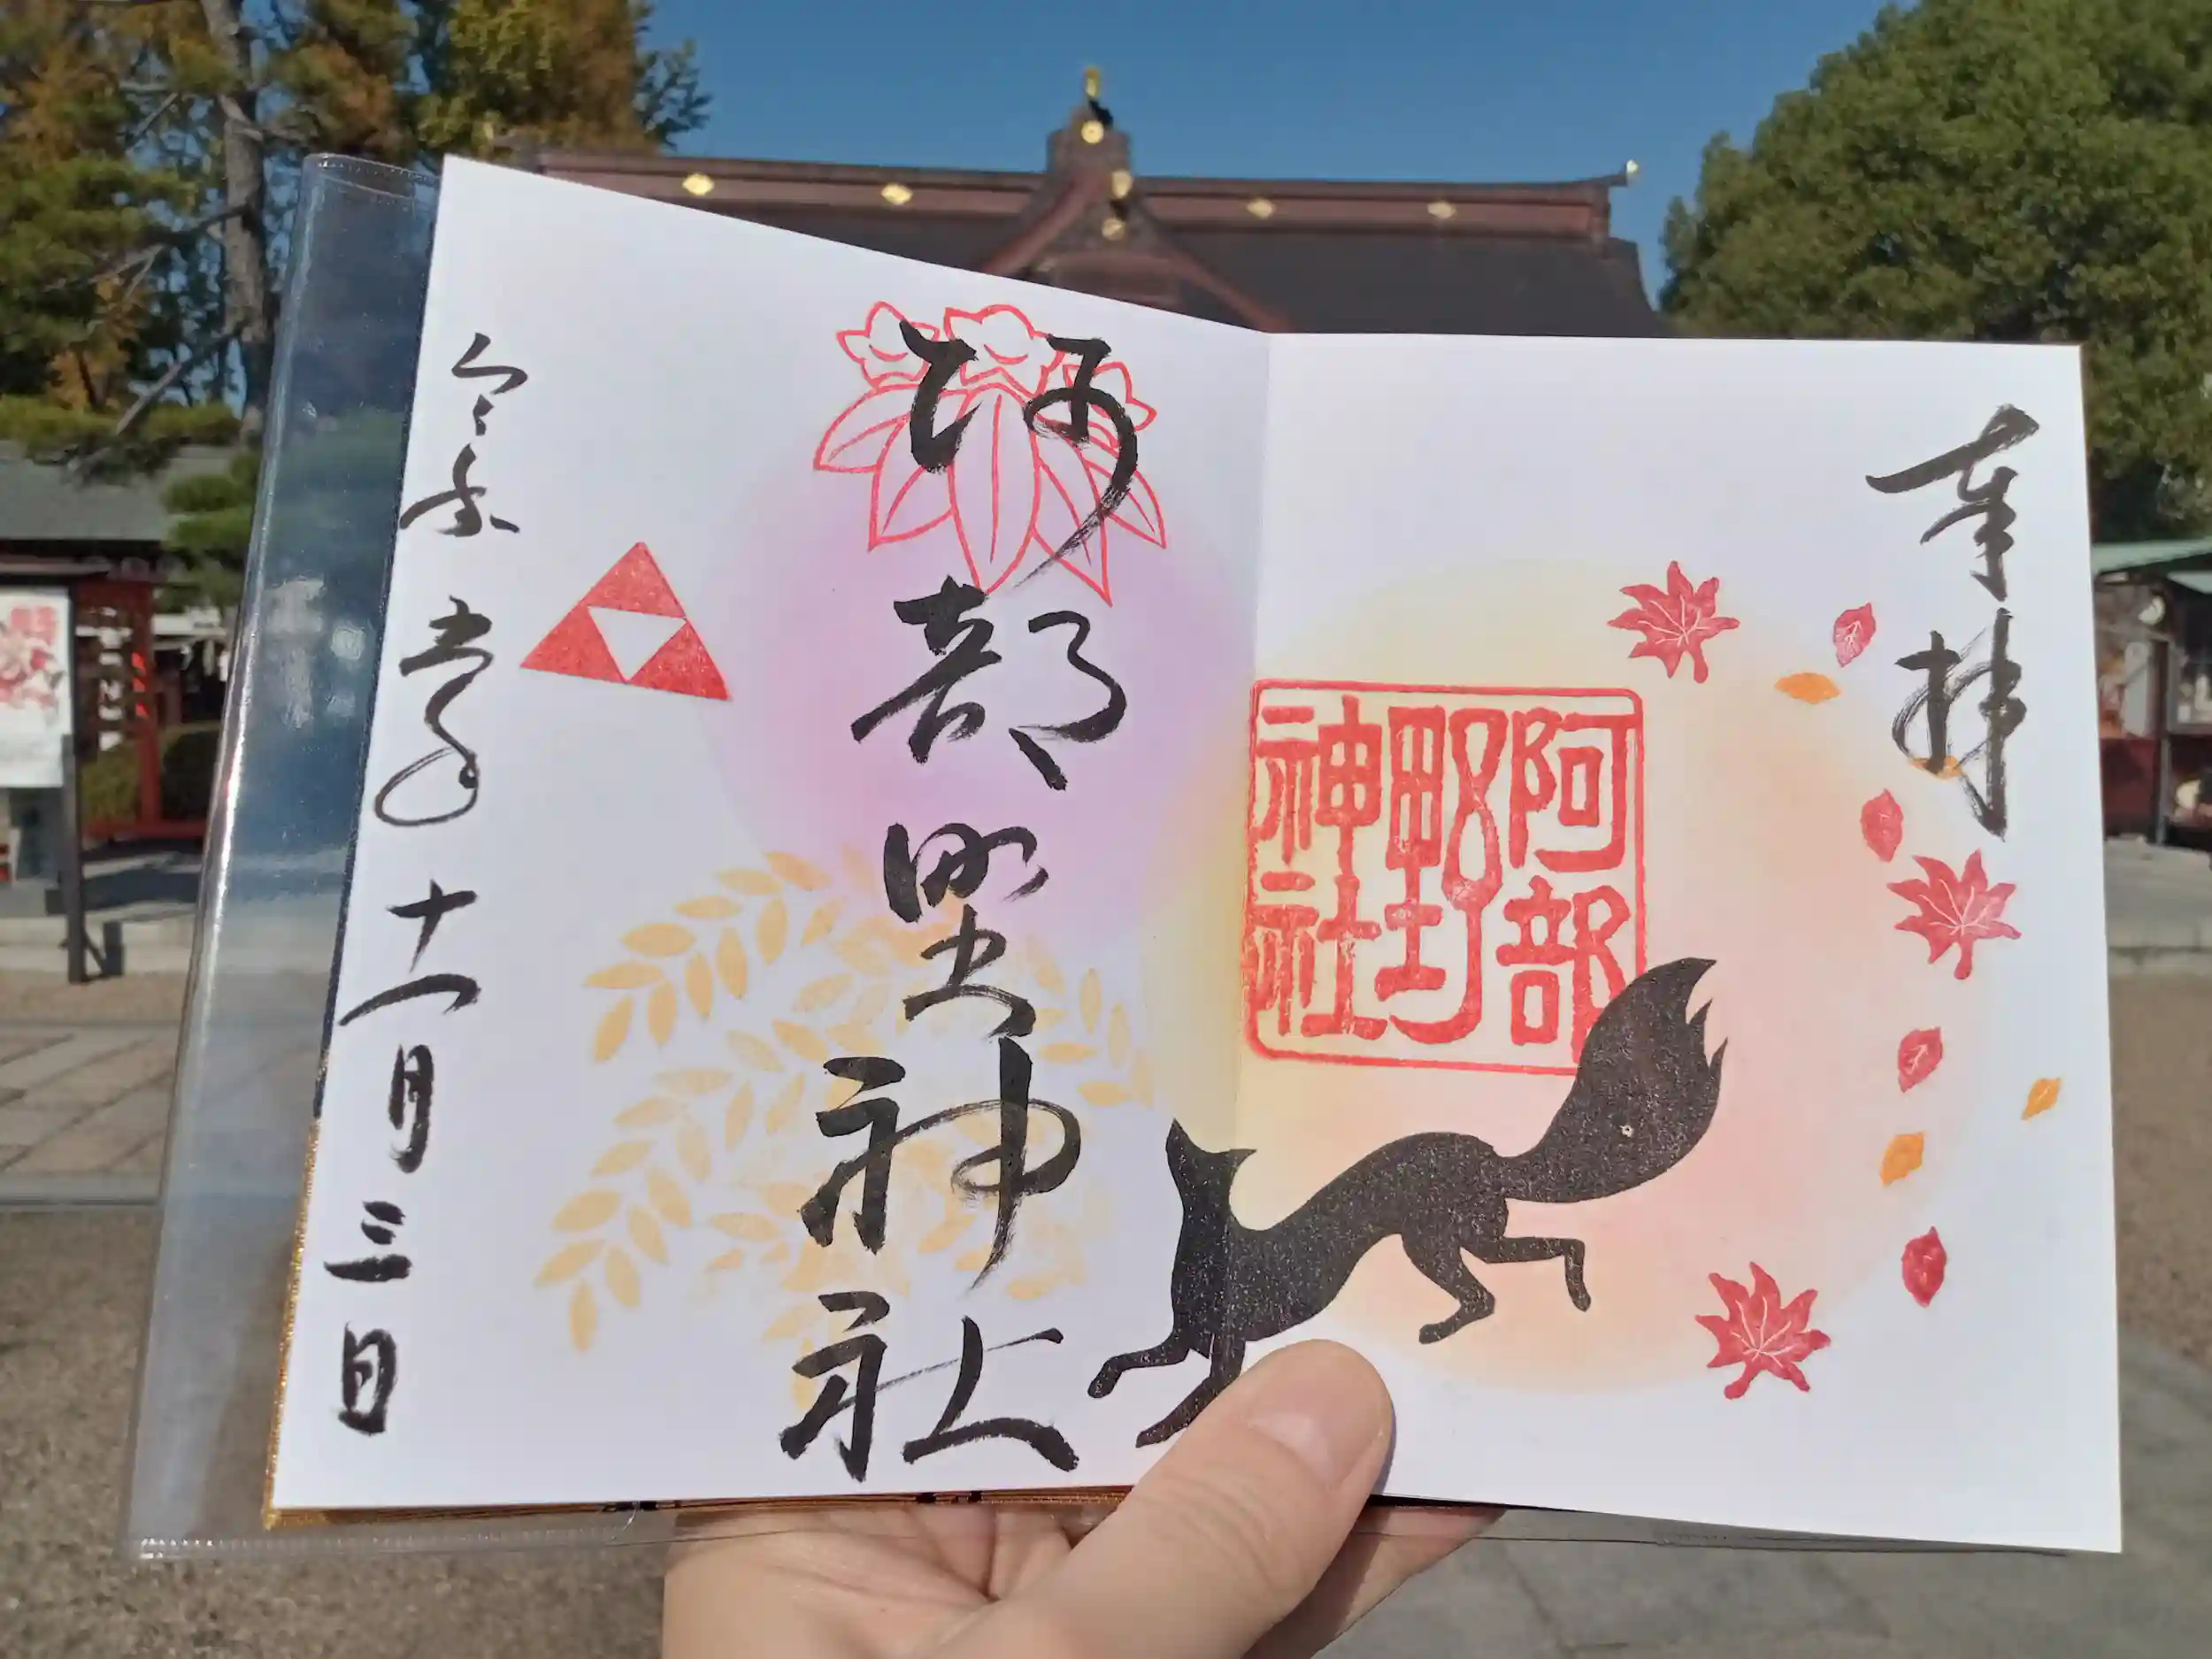 奉拝
阿部
野
神社
阿部野神社
令和五年十一月三日